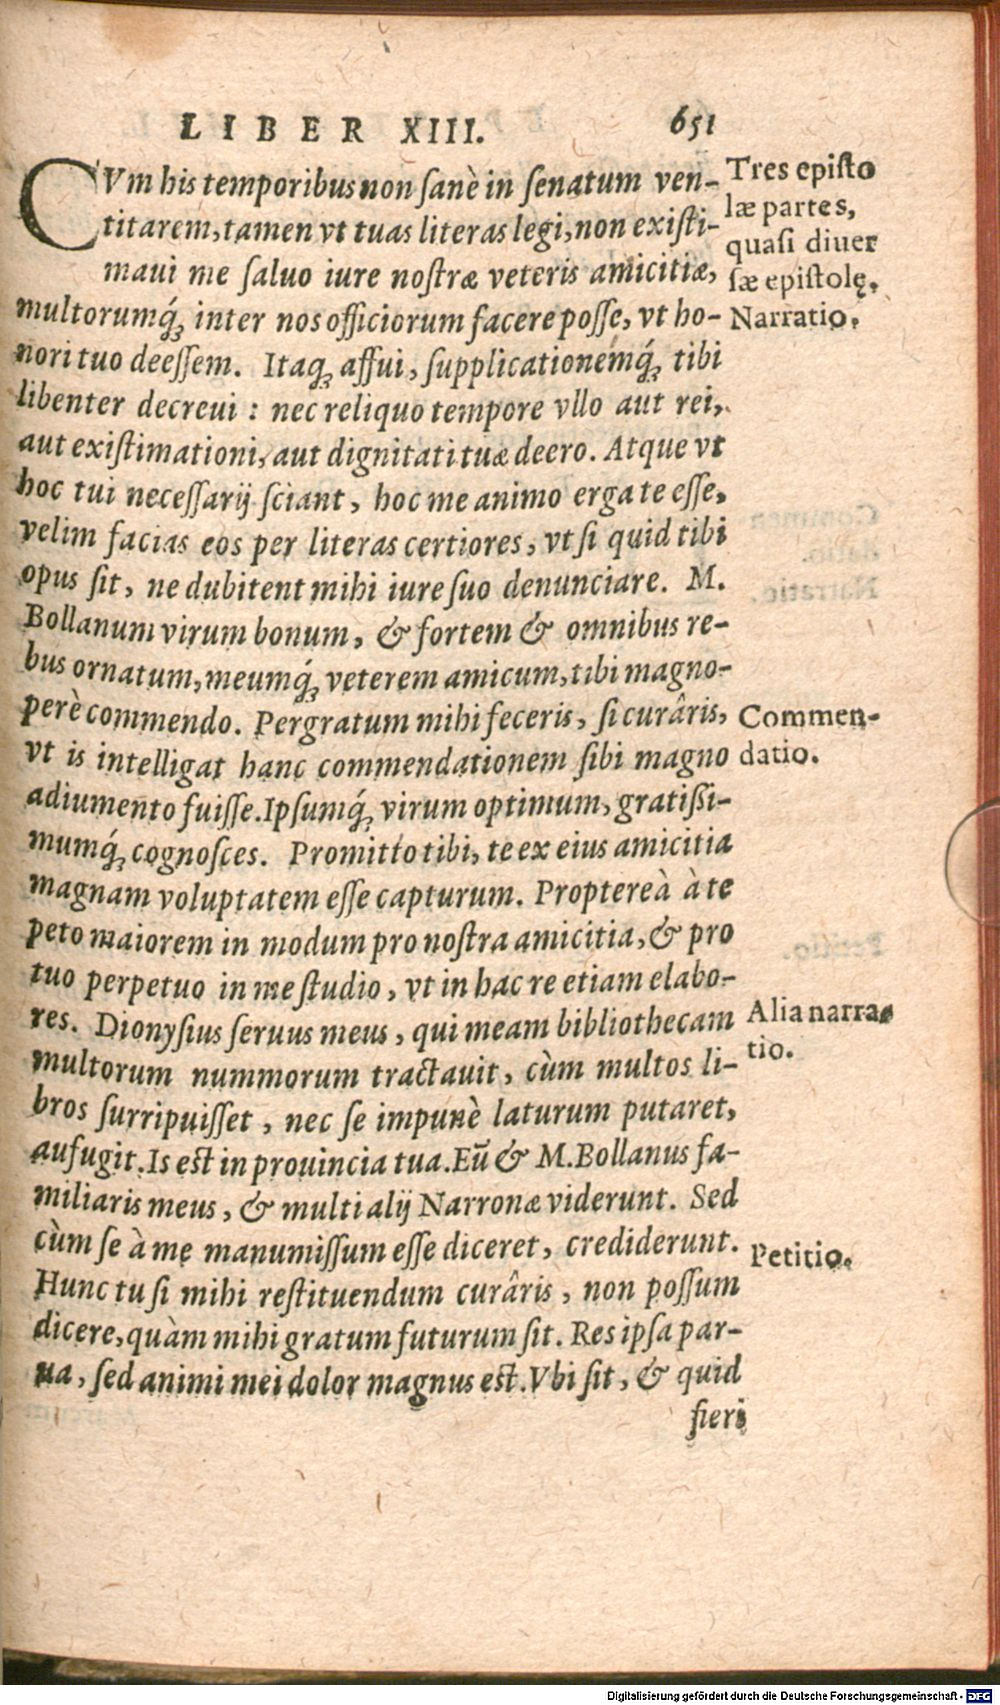 LIBER XIII. 651
CVm his temporibus non sanè in senatum ven-
titarem, tamen vt tuas literas legi, non existi-
maui me saluo iure nostræ veteris amicitiæ,
multorumq́; inter nos officiorum facere posse, vt ho-
nori tuo deessem. Itaq; affui, supplicationemq́; tibi
libenter decreui : nec reliquo tempore vllo aut rei,
aut existimationi, aut dignitati tuæ deero. Atque vt
hoc tui necessarij sciant, hoc me animo erga te esse,
velim facias eos per literas certiores, vt si quid tibi
opus sit, ne dubitent mihi iure suo denunciare. M.
Bollanum virum bonum, & fortem & omnibus re-
bus ornatum, meumq́; veterem amicum, tibi magno-
perè commendo. Pergratum mihi feceris, si curâris,
vt is intelligat hanc commendationem sibi magno
adiumento fuisse. Ipsumq́; virum optimum, gratissi-
mumq́; cognosces. Promitto tibi, te ex eius amicitia
magnam voluptatem esse capturum. Proptereà à te
peto maiorem in modum pro nostra amicitia, & pro
tuo perpetuo in me studio, vt in hac re etiam elabo-
res. Dionysius seruus meus, qui meam bibliothecam
multorum nummorum tractauit, cùm multos li-
bros surripuisset, nec se impunè laturum putaret,
aufugit. Is est in prouincia tua. Eū & M. Bollanus fa-
miliaris meus, & multi alij Narronæ viderunt. Sed
cùm se à me manumissum esse diceret, crediderunt.
Hunc tu si mihi restituendum curâris, non possum
dicere, quàm mihi gratum futurum sit. Res ipsa par-
ua, sed animi mei dolor magnus est. Vbi sit, & quid
fieri
Tres episto
læ partes,
quasi diuer
sæ epistolę.
Narratio.
Commen-
datio.
Alia narra-
tio.
Petitio.
Digitalisierung gefördert durch die Deutsche Forschungsgemeinschaft - DFG